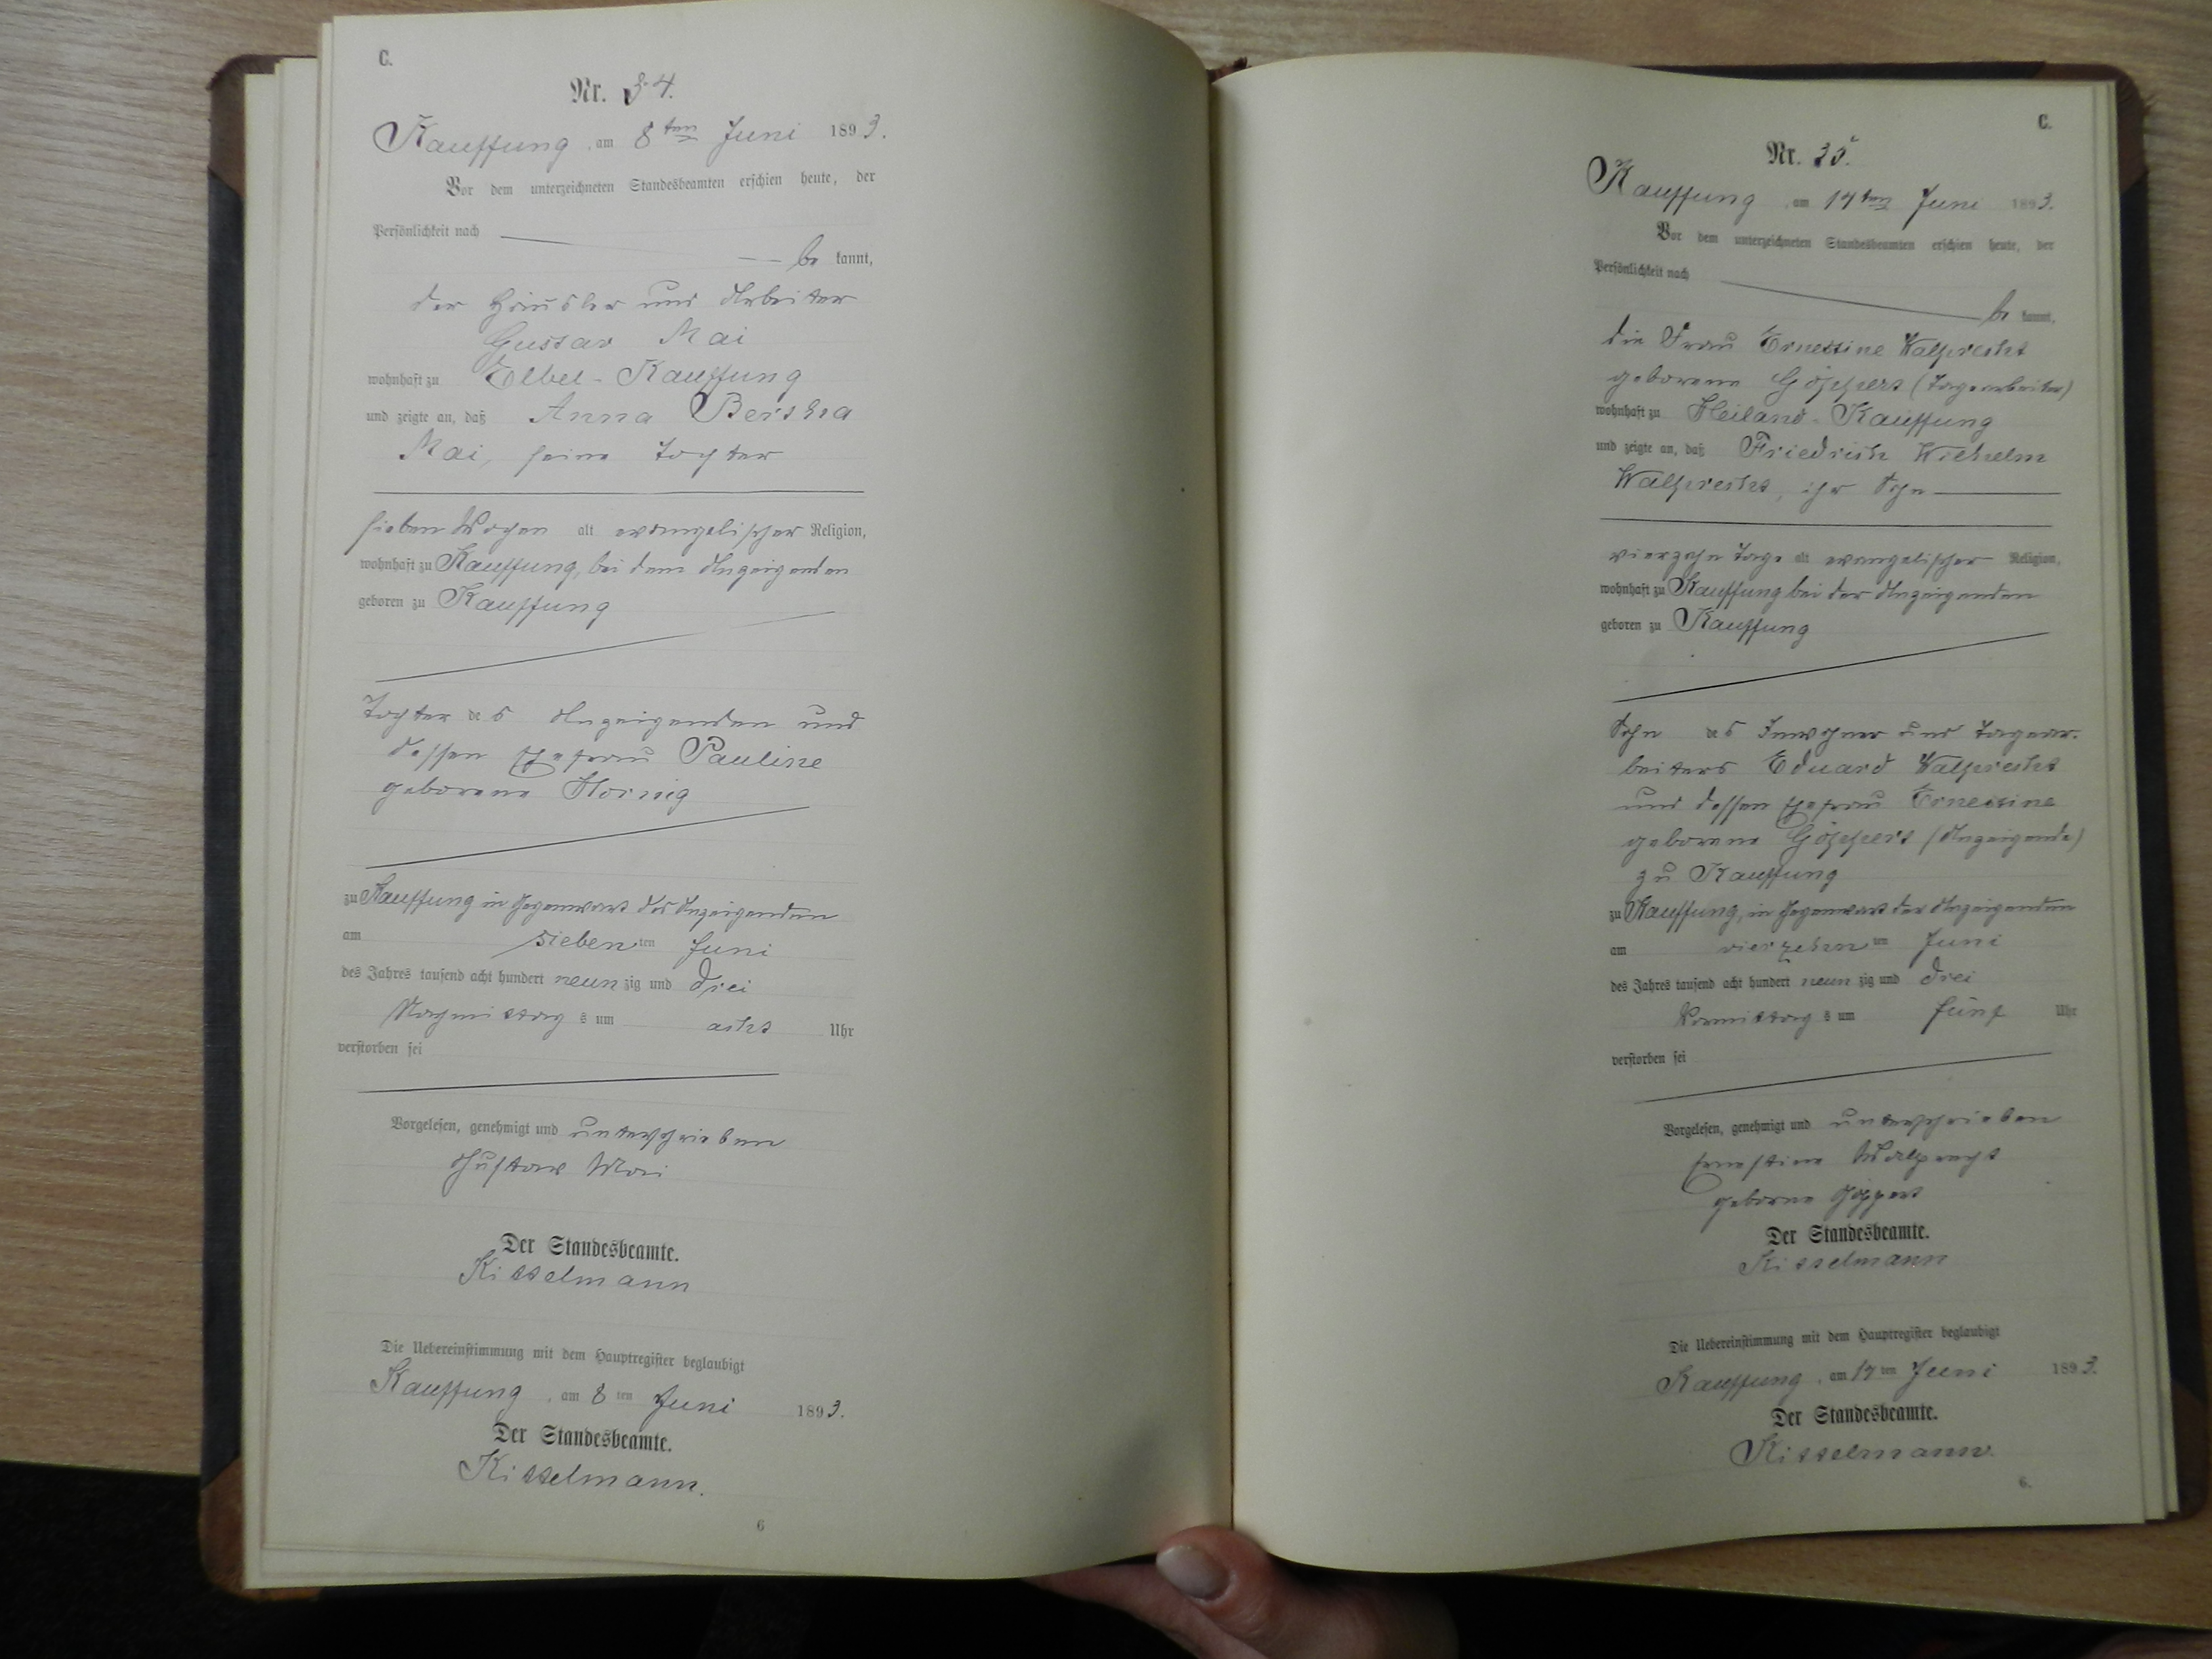 C.
Nr. 34.
Kauffung, am 8ten Juni 1893.
Vor dem unterzeichneten Standesbeamten erschien heute, der
Persönlichkeit nach
be kannt,
der Häusler und Arbeiter
Gustav Mai
wohnhaft zu Elbel-Kauffung
und zeigte an, daß Anna Bertha
Mai, seine Tochter
sieben Wochen alt evangelischer Religion,
wohnhaft zu Kauffung, bei dem Anzeigenden
geboren zu Kauffung
Tochter des Anzeigenden und
dessen Ehefrau Pauline
geborene Hornig
zu Kauffung in Gegenwart des Anzeigenden
am siebenten Juni
des Jahres tausend acht hundert neunzig und drei
Nachmittags um acht Uhr
verstorben sei
Vorgelesen, genehmigt und unterschrieben
Gustav Mai
Der Standesbeamte.
Kisselmann
Die Uebereinstimmung mit dem Hauptregister beglaubigt
Kauffung, am 8ten Juni 1893.
Der Standesbeamte.
Kisselmann.
6
C.
Nr. 35.
Kauffung, am 14ten Juni 1893.
Vor dem unterzeichneten Standesbeamten erschien heute, der
Persönlichkeit nach
be kannt,
die Frau Ernestine Walprecht
geborene Göppert (Tagearbeiter)
wohnhaft zu Heiland-Kauffung
und zeigte an, daß Friedrich Wilhelm
Walprecht, ihr Sohn
vierzehn Tage alt evangelischer Religion,
wohnhaft zu Kauffung bei der Anzeigenden
geboren zu Kauffung
Sohn des Inwohner und Tagear-
beiters Eduard Walprecht
und dessen Ehefrau Ernestine
geborene Göppert (Anzeigende)
zu Kauffung
zu Kauffung, in Gegenwart der Anzeigenden
am vierzehnten Juni
des Jahres tausend acht hundert neunzig und drei
Vormittags um fünf Uhr
verstorben sei
Vorgelesen, genehmigt und unterschrieben
Ernestine Walprecht
geborne Göppert
Der Standesbeamte.
Kisselmann
Die Uebereinstimmung mit dem Hauptregister beglaubigt
Kauffung, am 14ten Juni 1893.
Der Standesbeamte.
Kisselmann.
6.